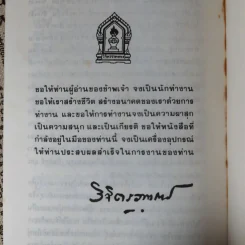 ขอให้ท่านผู้อ่านของข้าพเจ้า จงเป็นนักทำงาน
ขอให้เราสร้างชีวิต สร้างอนาคตของเราด้วยการ
ทำงาน และขอให้การทำงานจงเป็นความผาสุก
เป็นความสนุก และเป็นเกียรติ ขอให้หนังสือที่
กำลังอยู่ในมือของท่านนี้ จงเป็นเครื่องอุปกรณ์
ให้ท่านประสบผลสำเร็จในการงานของท่าน
วิจิตรวาทการ